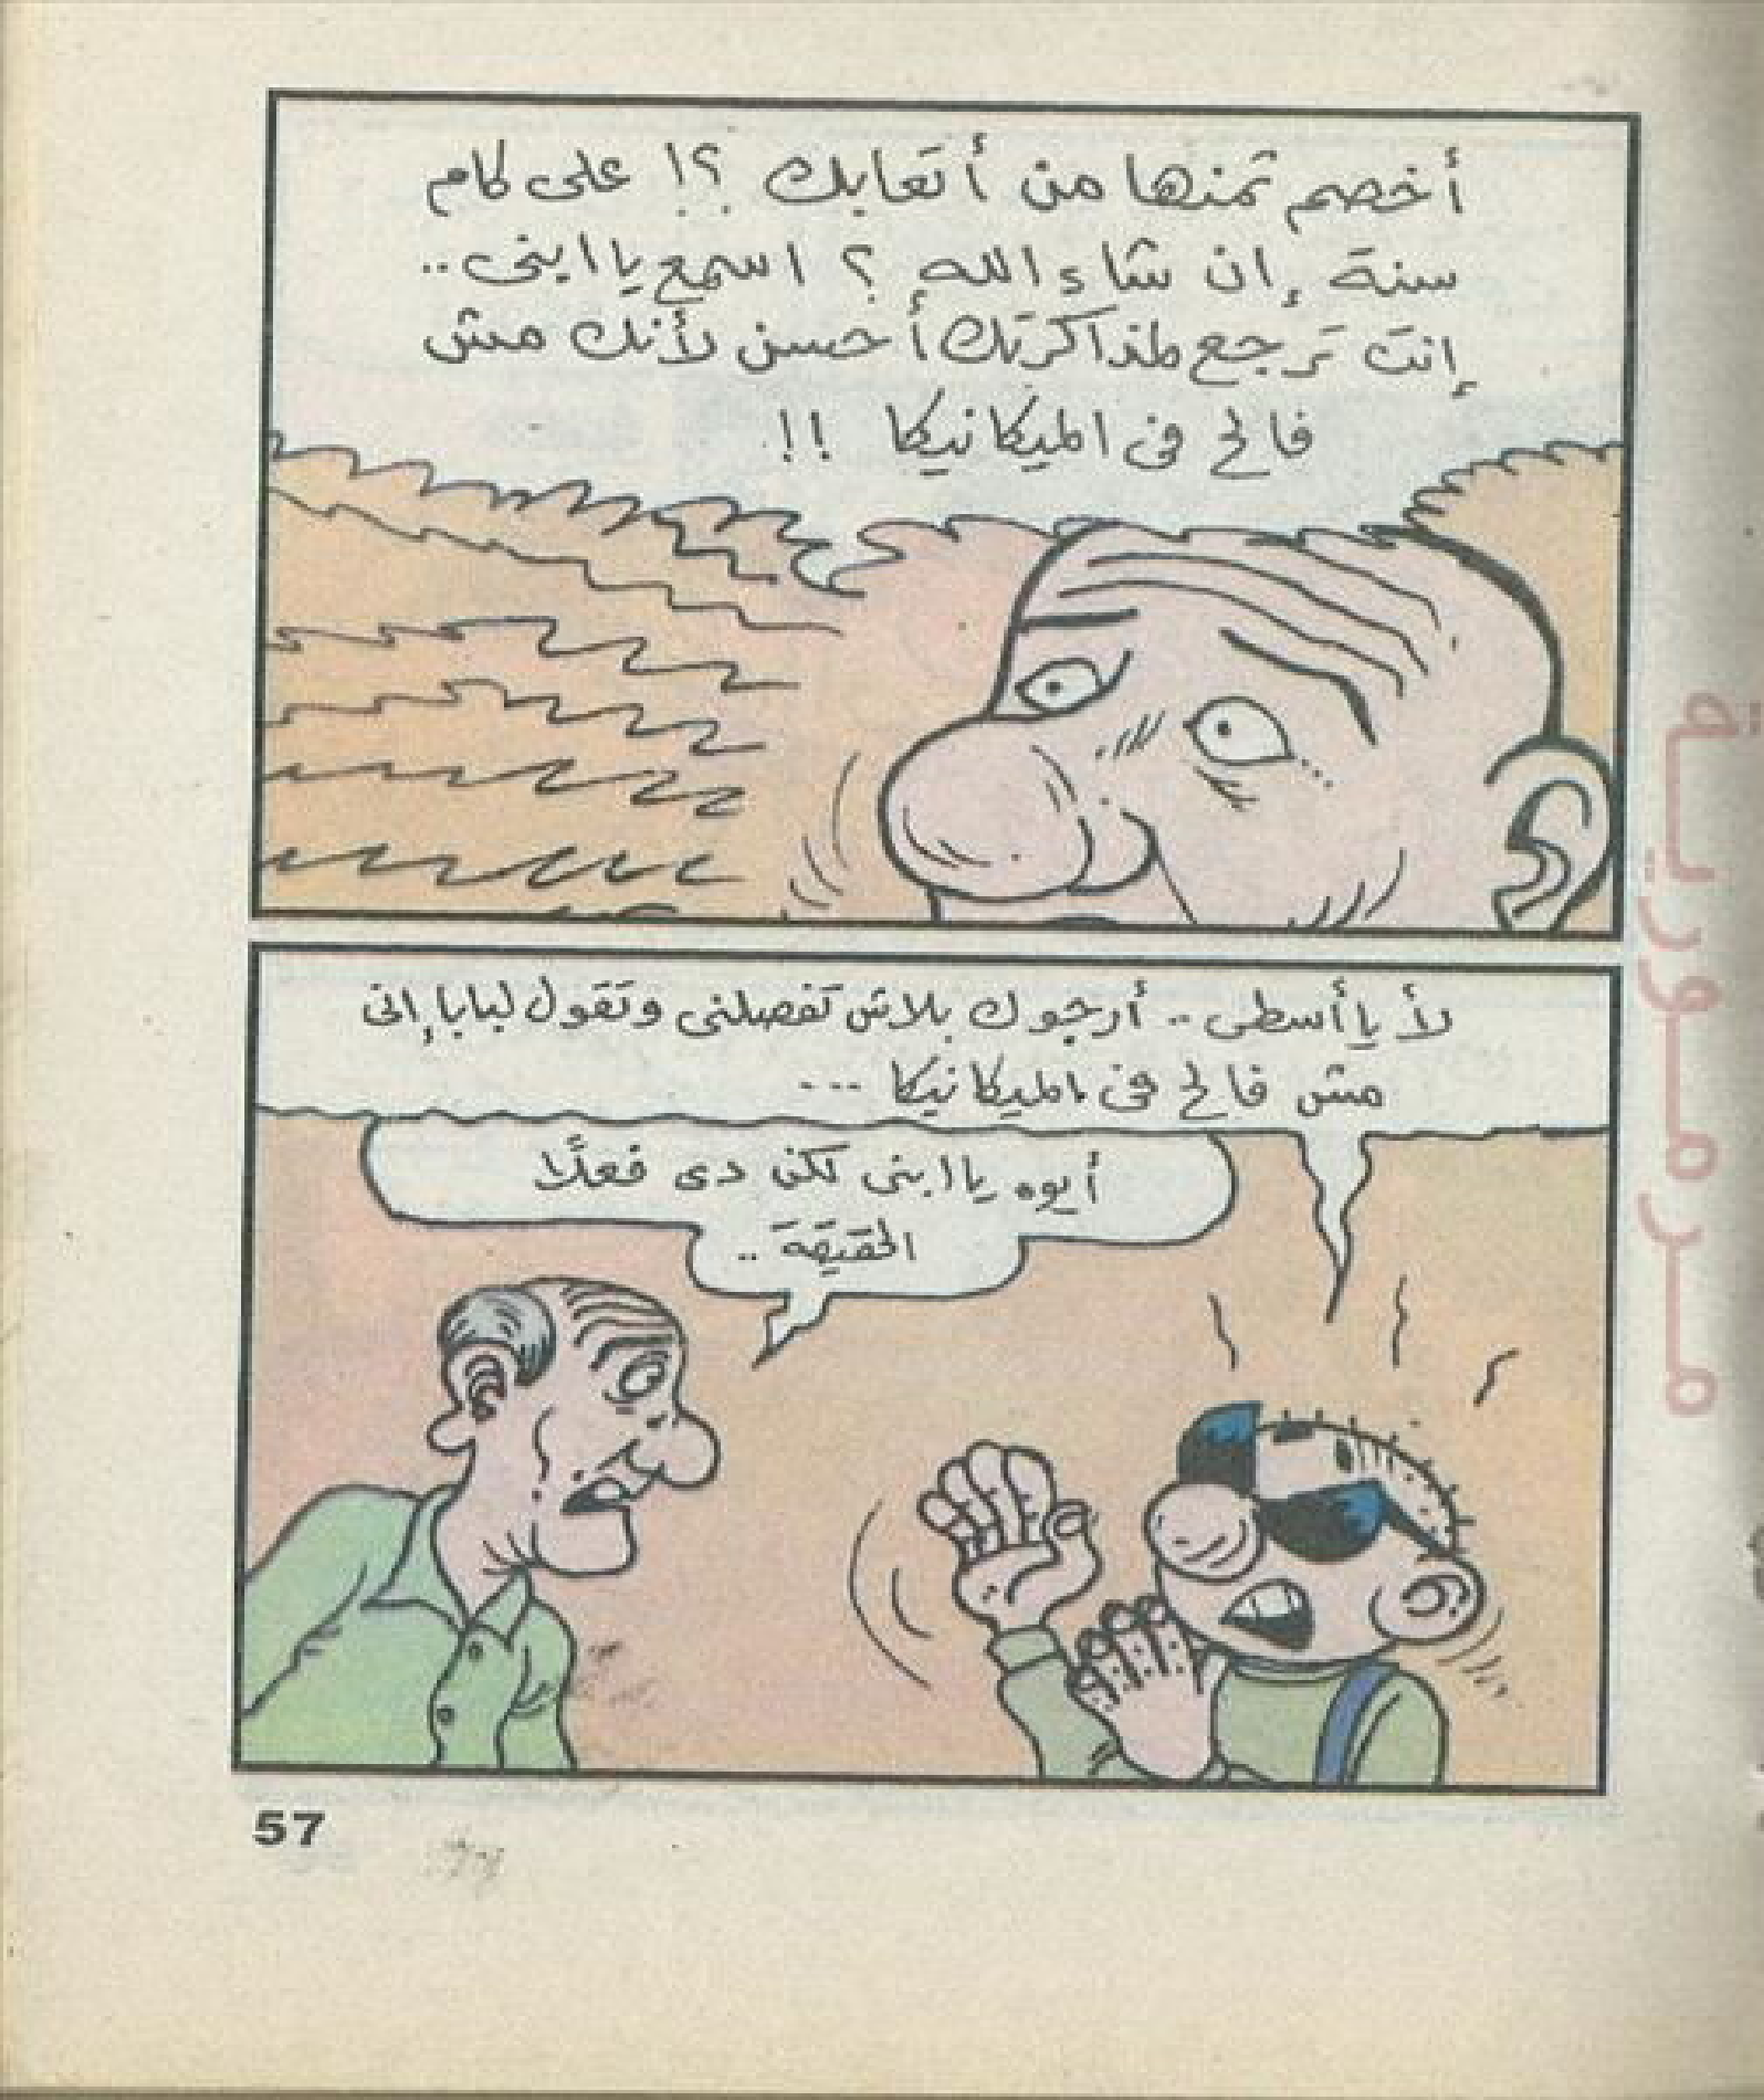 أخصم تمنها من أتعابك ؟! على كام
سنة إن شاء الله ؟ اسمع يا ابنى ..
إنت ترجع لمذاكرتك أحسن لأنك مش
فالح فى الميكانيكا !!
لأ يا أسطى .. أرجوك بلاش تفصلنى وتقول لبابا إنى
مش فالح فى الميكانيكا ...
أيوه يا ابنى لكن دى فعلًا
الحقيقة ..
57
مرمورية